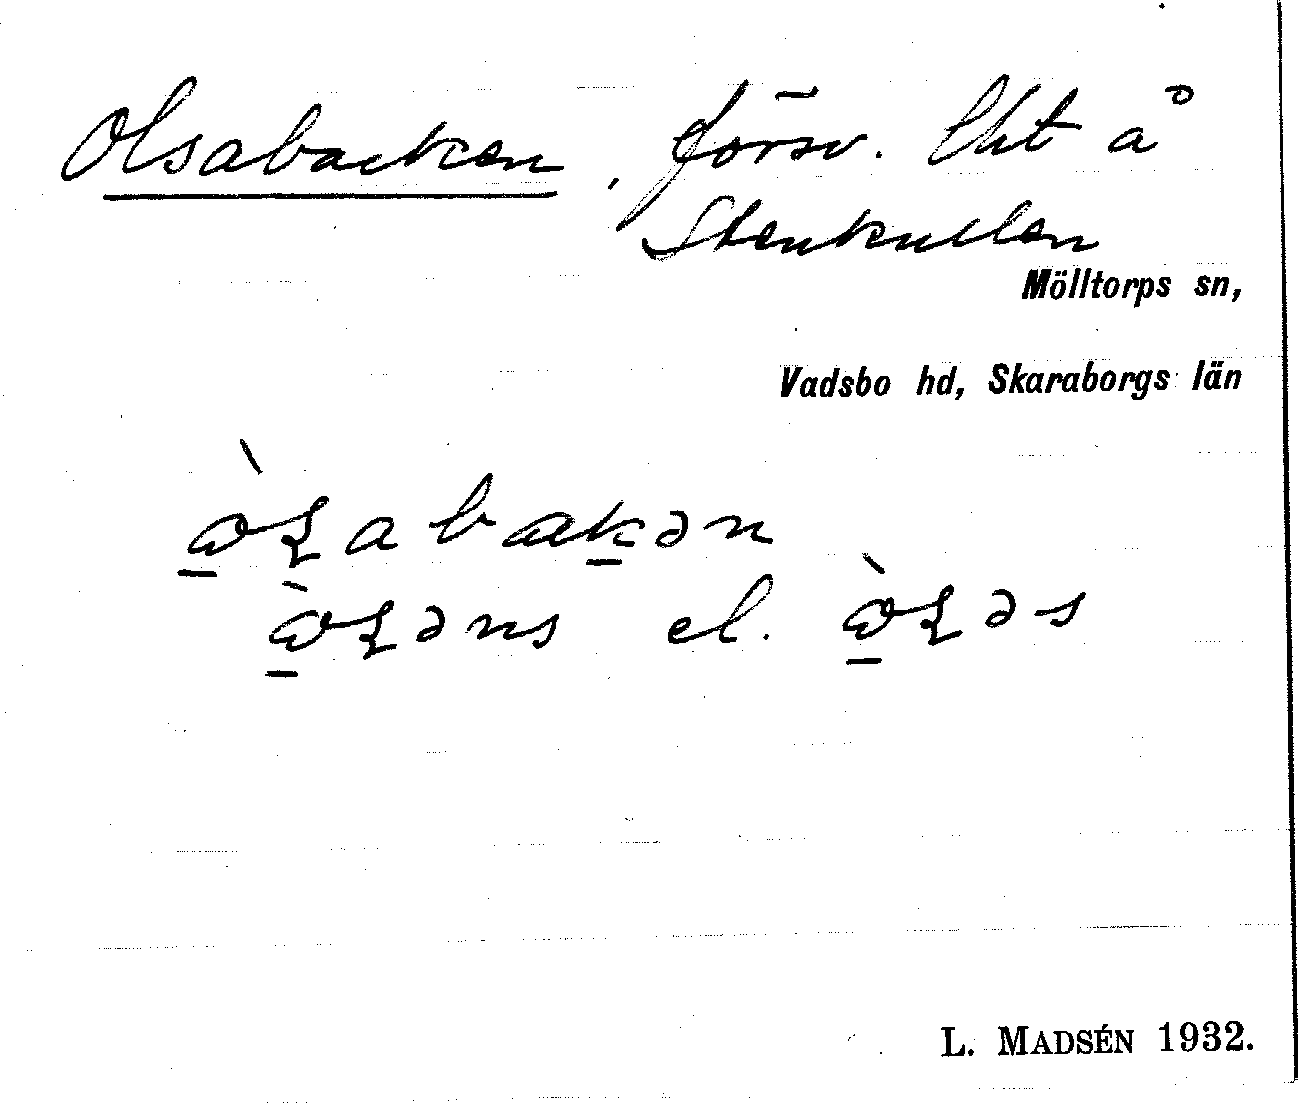 Olsabacken, försv. lht å
Stenkullen
Mölltorps sn,
Vadsbo hd, Skaraborgs län
el.
L. MADSÉN 1932.